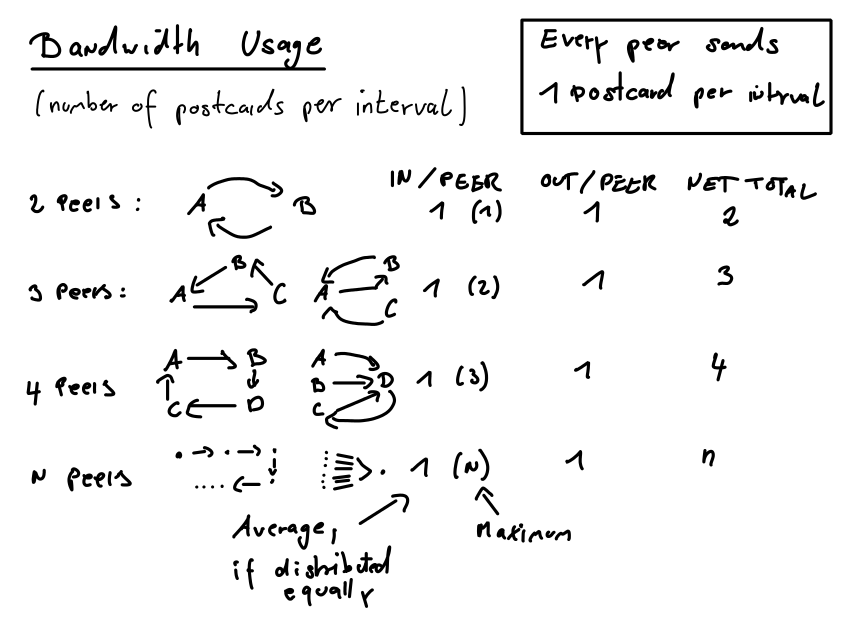 Bandwidth Usage
(number of postcards per interval)
Every peer sends
1 postcard per interval
IN/PEER OUT/PEER NET TOTAL
2 Peers: A B 1 (1) 1 2
3 Peers: A B C A B C 1 (2) 1 3
4 Peers A B C D A B C D 1 (3) 1 4
N Peers 1 (N) 1 n
Average,
if distributed
equally
Maximum